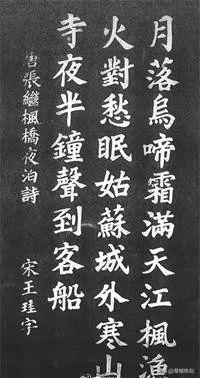 月落烏啼霜滿天江楓漁
火對愁眠姑蘇城外寒山
寺夜半鐘聲到客船
唐張繼楓橋夜泊詩
宋王珪字